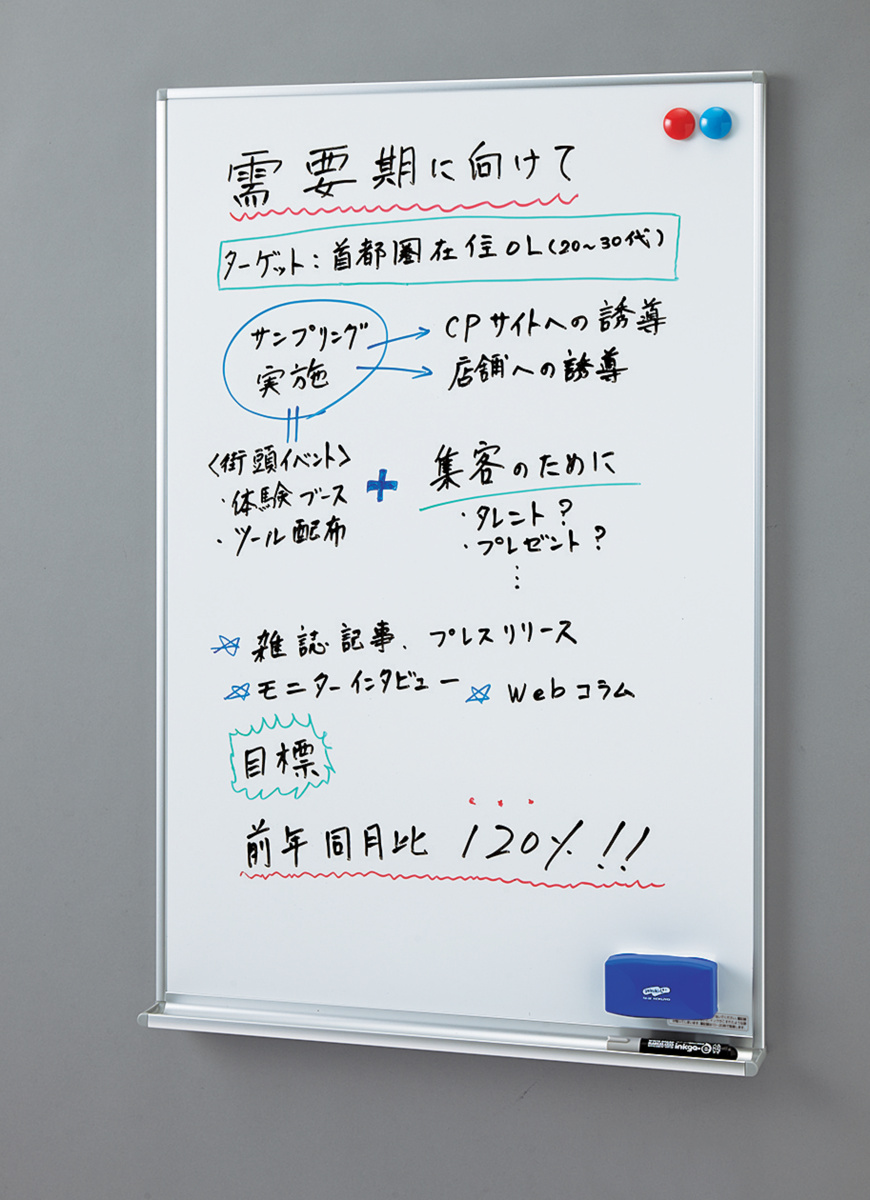 需要期に向けて
ターゲット：首都圏在住OL(20〜30代)
サンプリング
実施
CPサイトへの誘導
店舗への誘導
〈街頭イベント〉
・体験ブース
・ツール配布
+
集客のために
・タレント？
・プレゼント？
⋮
☆雑誌記事、プレスリリース
☆モニターインタビュー ☆Webコラム
目標
前年同月比 120%!!
inkga-e